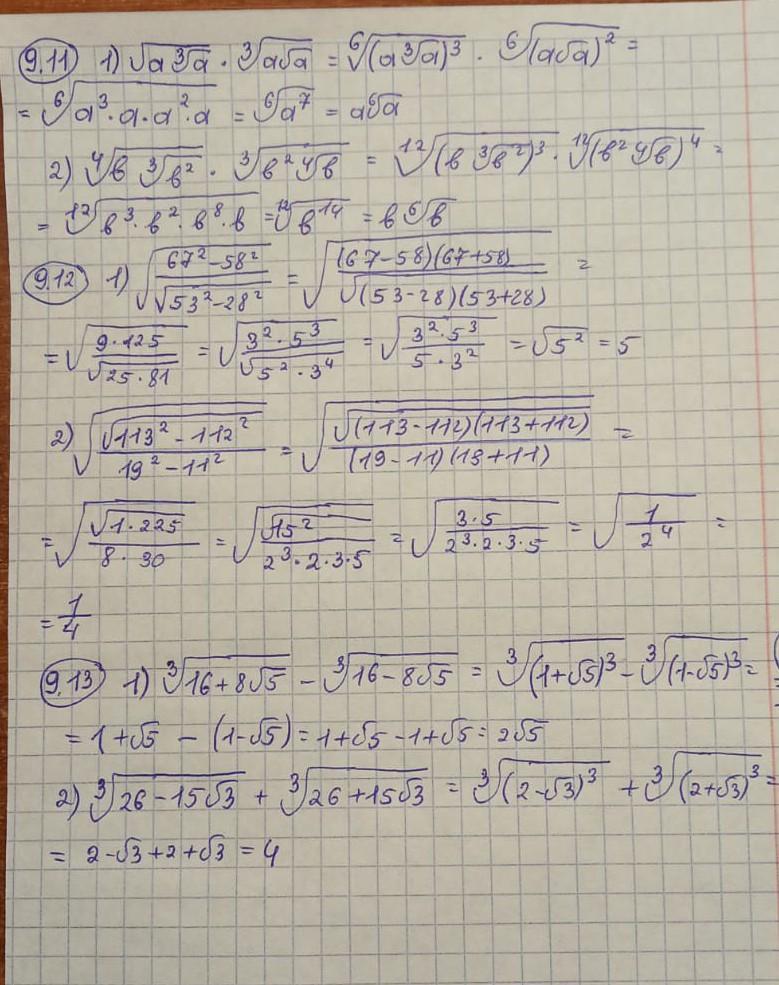 9.11 1) √(a∛a) · ∛(a√a) = ⁶√((a∛a)³) · ⁶√((a√a)²) =
= ⁶√(a³·a·a²·a) = ⁶√(a⁷) = a⁶√a
2) ⁴√(в ∛(в²)) · ∛(в² ⁴√в) = ¹²√((в ∛(в²))³) · ¹²√((в² ⁴√в)⁴) =
= ¹²√(в³·в²·в⁸·в) = ¹²√(в¹⁴) = в ⁶√в
9.12 1) √((67²-58²)/√(53²-28²)) = √((67-58)(67+58)/√((53-28)(53+28))) =
= √(9·125/√(25·81)) = √(3²·5³/√(5²·3⁴)) = √(3²·5³/(5·3²)) = √(5²) = 5
2) √(√(113²-112²)/(19²-11²)) = √(√((113-112)(113+112))/((19-11)(19+11))) =
= √(√(1·225)/(8·30)) = √(√(15²)/(2³·2·3·5)) = √(3·5/(2³·2·3·5)) = √(1/2⁴) =
= 1/4
9.13 1) ∛(16+8√5) - ∛(16-8√5) = ∛((1+√5)³) - ∛((1-√5)³) =
= 1+√5 - (1-√5) = 1+√5-1+√5 = 2√5
2) ∛(26-15√3) + ∛(26+15√3) = ∛((2-√3)³) + ∛((2+√3)³) =
= 2-√3+2+√3 = 4